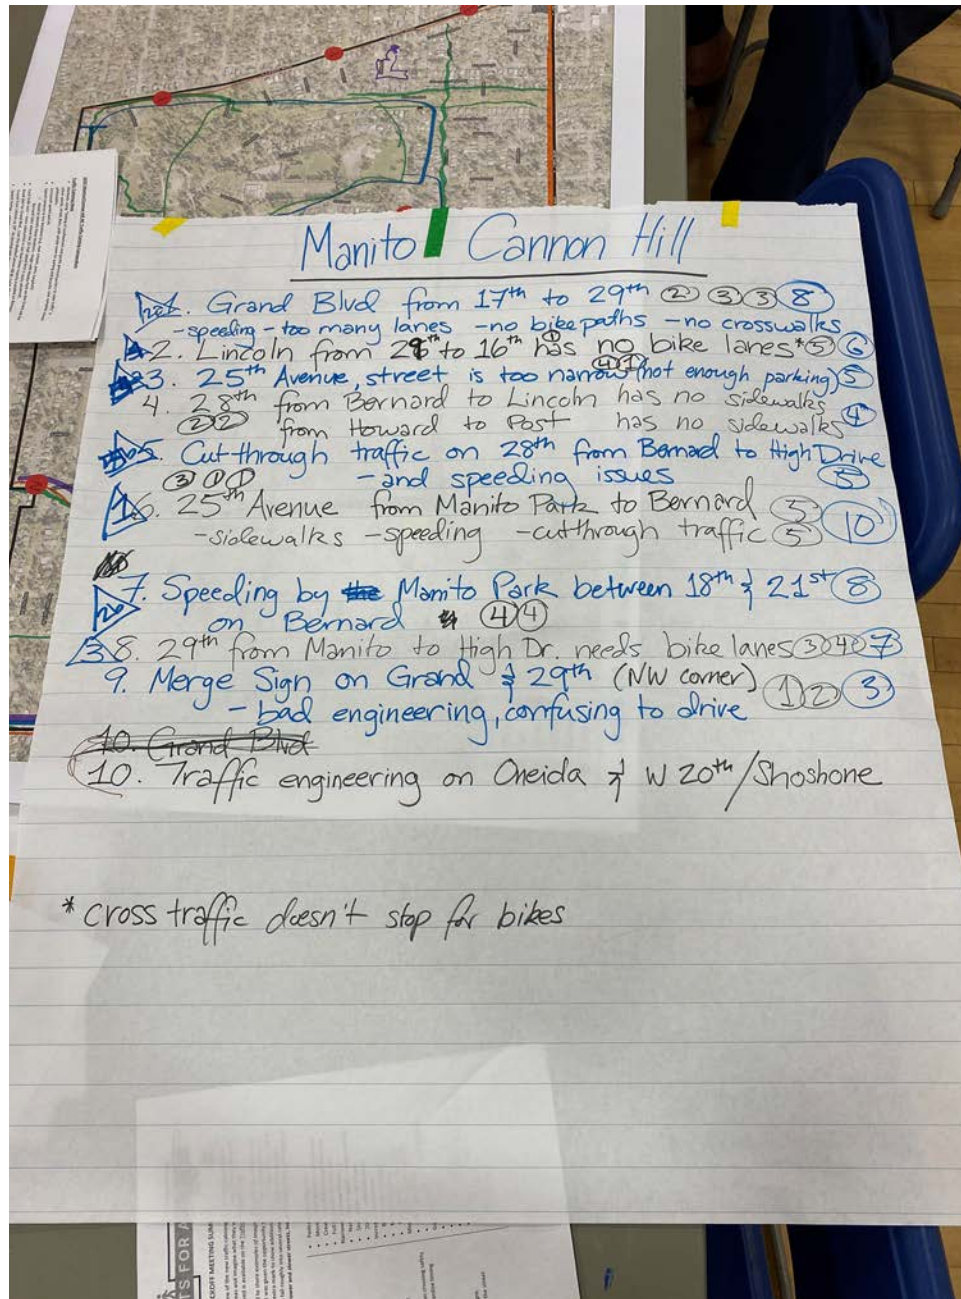 Manito Cannon Hill
1. Grand Blvd from 17th to 29th ② ③ ③ ⑧
-speeding -too many lanes -no bike paths -no crosswalks
2. Lincoln from 28th to 16th has no bike lanes* ① ⑤ ⑥
3. 25th Avenue, street is too narrow (not enough parking) ④ ① ⑤
4. 28th from Bernard to Lincoln has no sidewalks
② ② from Howard to Post has no sidewalks ④
5. Cut through traffic on 28th from Bernard to High Drive
③ ① ① - and speeding issues ⑤
1 6. 25th Avenue from Manito Park to Bernard ⑤
-sidewalks -speeding -cutthrough traffic ⑤ ⑩
7. Speeding by the Manito Park between 18th & 21st ⑧
on Bernard ④ ④
3 8. 29th from Manito to High Dr. needs bike lanes ③ ④ ⑦
9. Merge Sign on Grand & 29th (NW corner) ① ② ③
- bad engineering, confusing to drive
10. Grand Blvd
10. Traffic engineering on Oneida & W 20th/Shoshone
* cross traffic doesn't stop for bikes
TS FOR A
CKOFF MEETING SUM